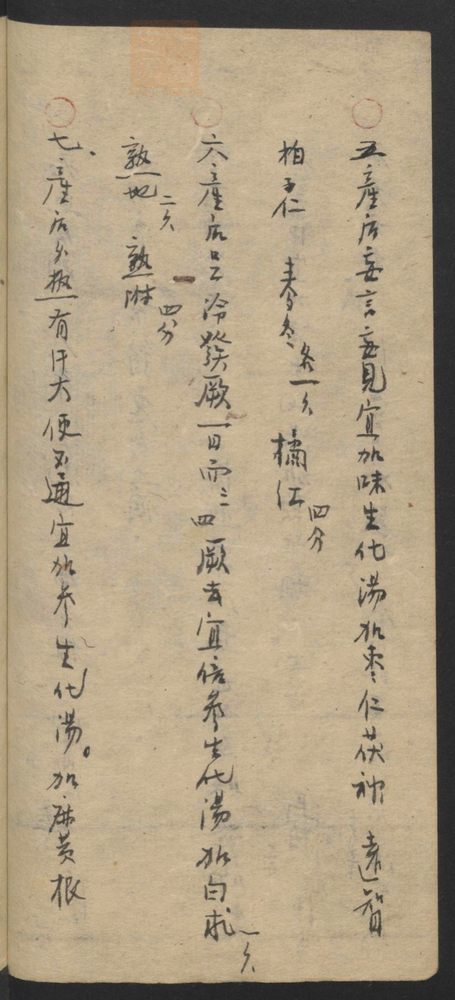 五產后妄言妄見宜加味生化湯加棗仁茯神 遠智
柏子仁 麥冬各一久 橘红四分
六、產后口冷發厥一日而三四厥者宜倍參生化湯加白朮一久
熟地二久 熟附四分
七、產后身热有汗大便不通宜加參生化湯。加麻黄根